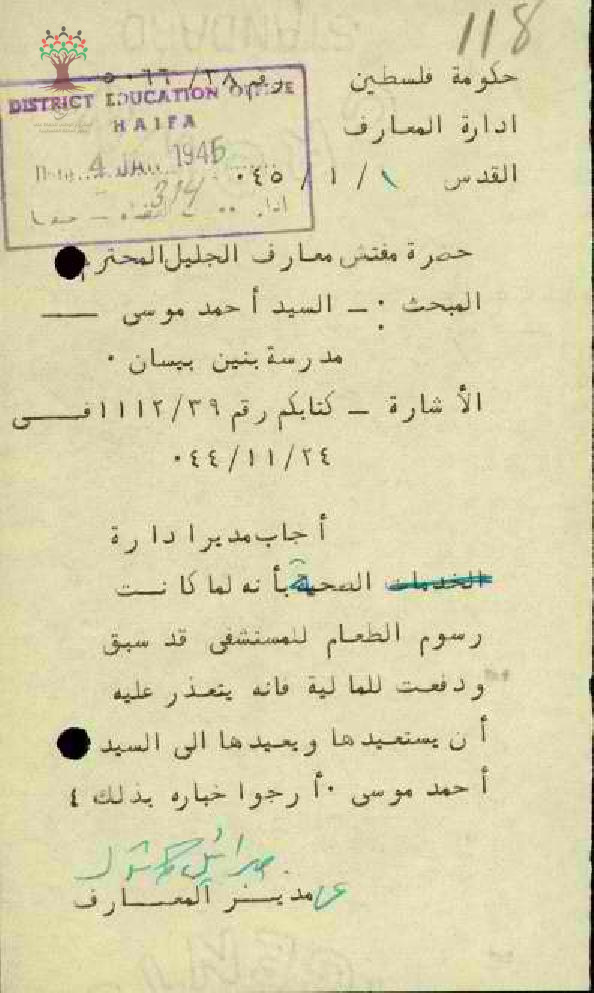 118
حكومة فلسطين
رقم ٢٨/ ٥٠٦٦
ادارة المعارف
القدس ١ / ١ / ٠٤٥
DISTRICT EDUCATION OFFICE
HAIFA
4 JAN 1945
314
حضرة مفتش معارف الجليل المحترم
المبحث :ـ السيد أحمد موسى ــ
مدرسة بنين بيسان ٠
الأشارة ـ كتابكم رقم ١١١٢/٣٩ فـــى
٠٤٤/١١/٢٤
أجاب مدير ادارة
الخدمات الصحية بأنه لما كانــت
رسوم الطعام للمستشفى قد سبق
ودفعت للمالية فانه يتعذر عليه
أن يستعيدها ويعيدها الى السيد
أحمد موسى ٠ أرجوا خباره بذلك ٤
ع مديــر المعــــارف